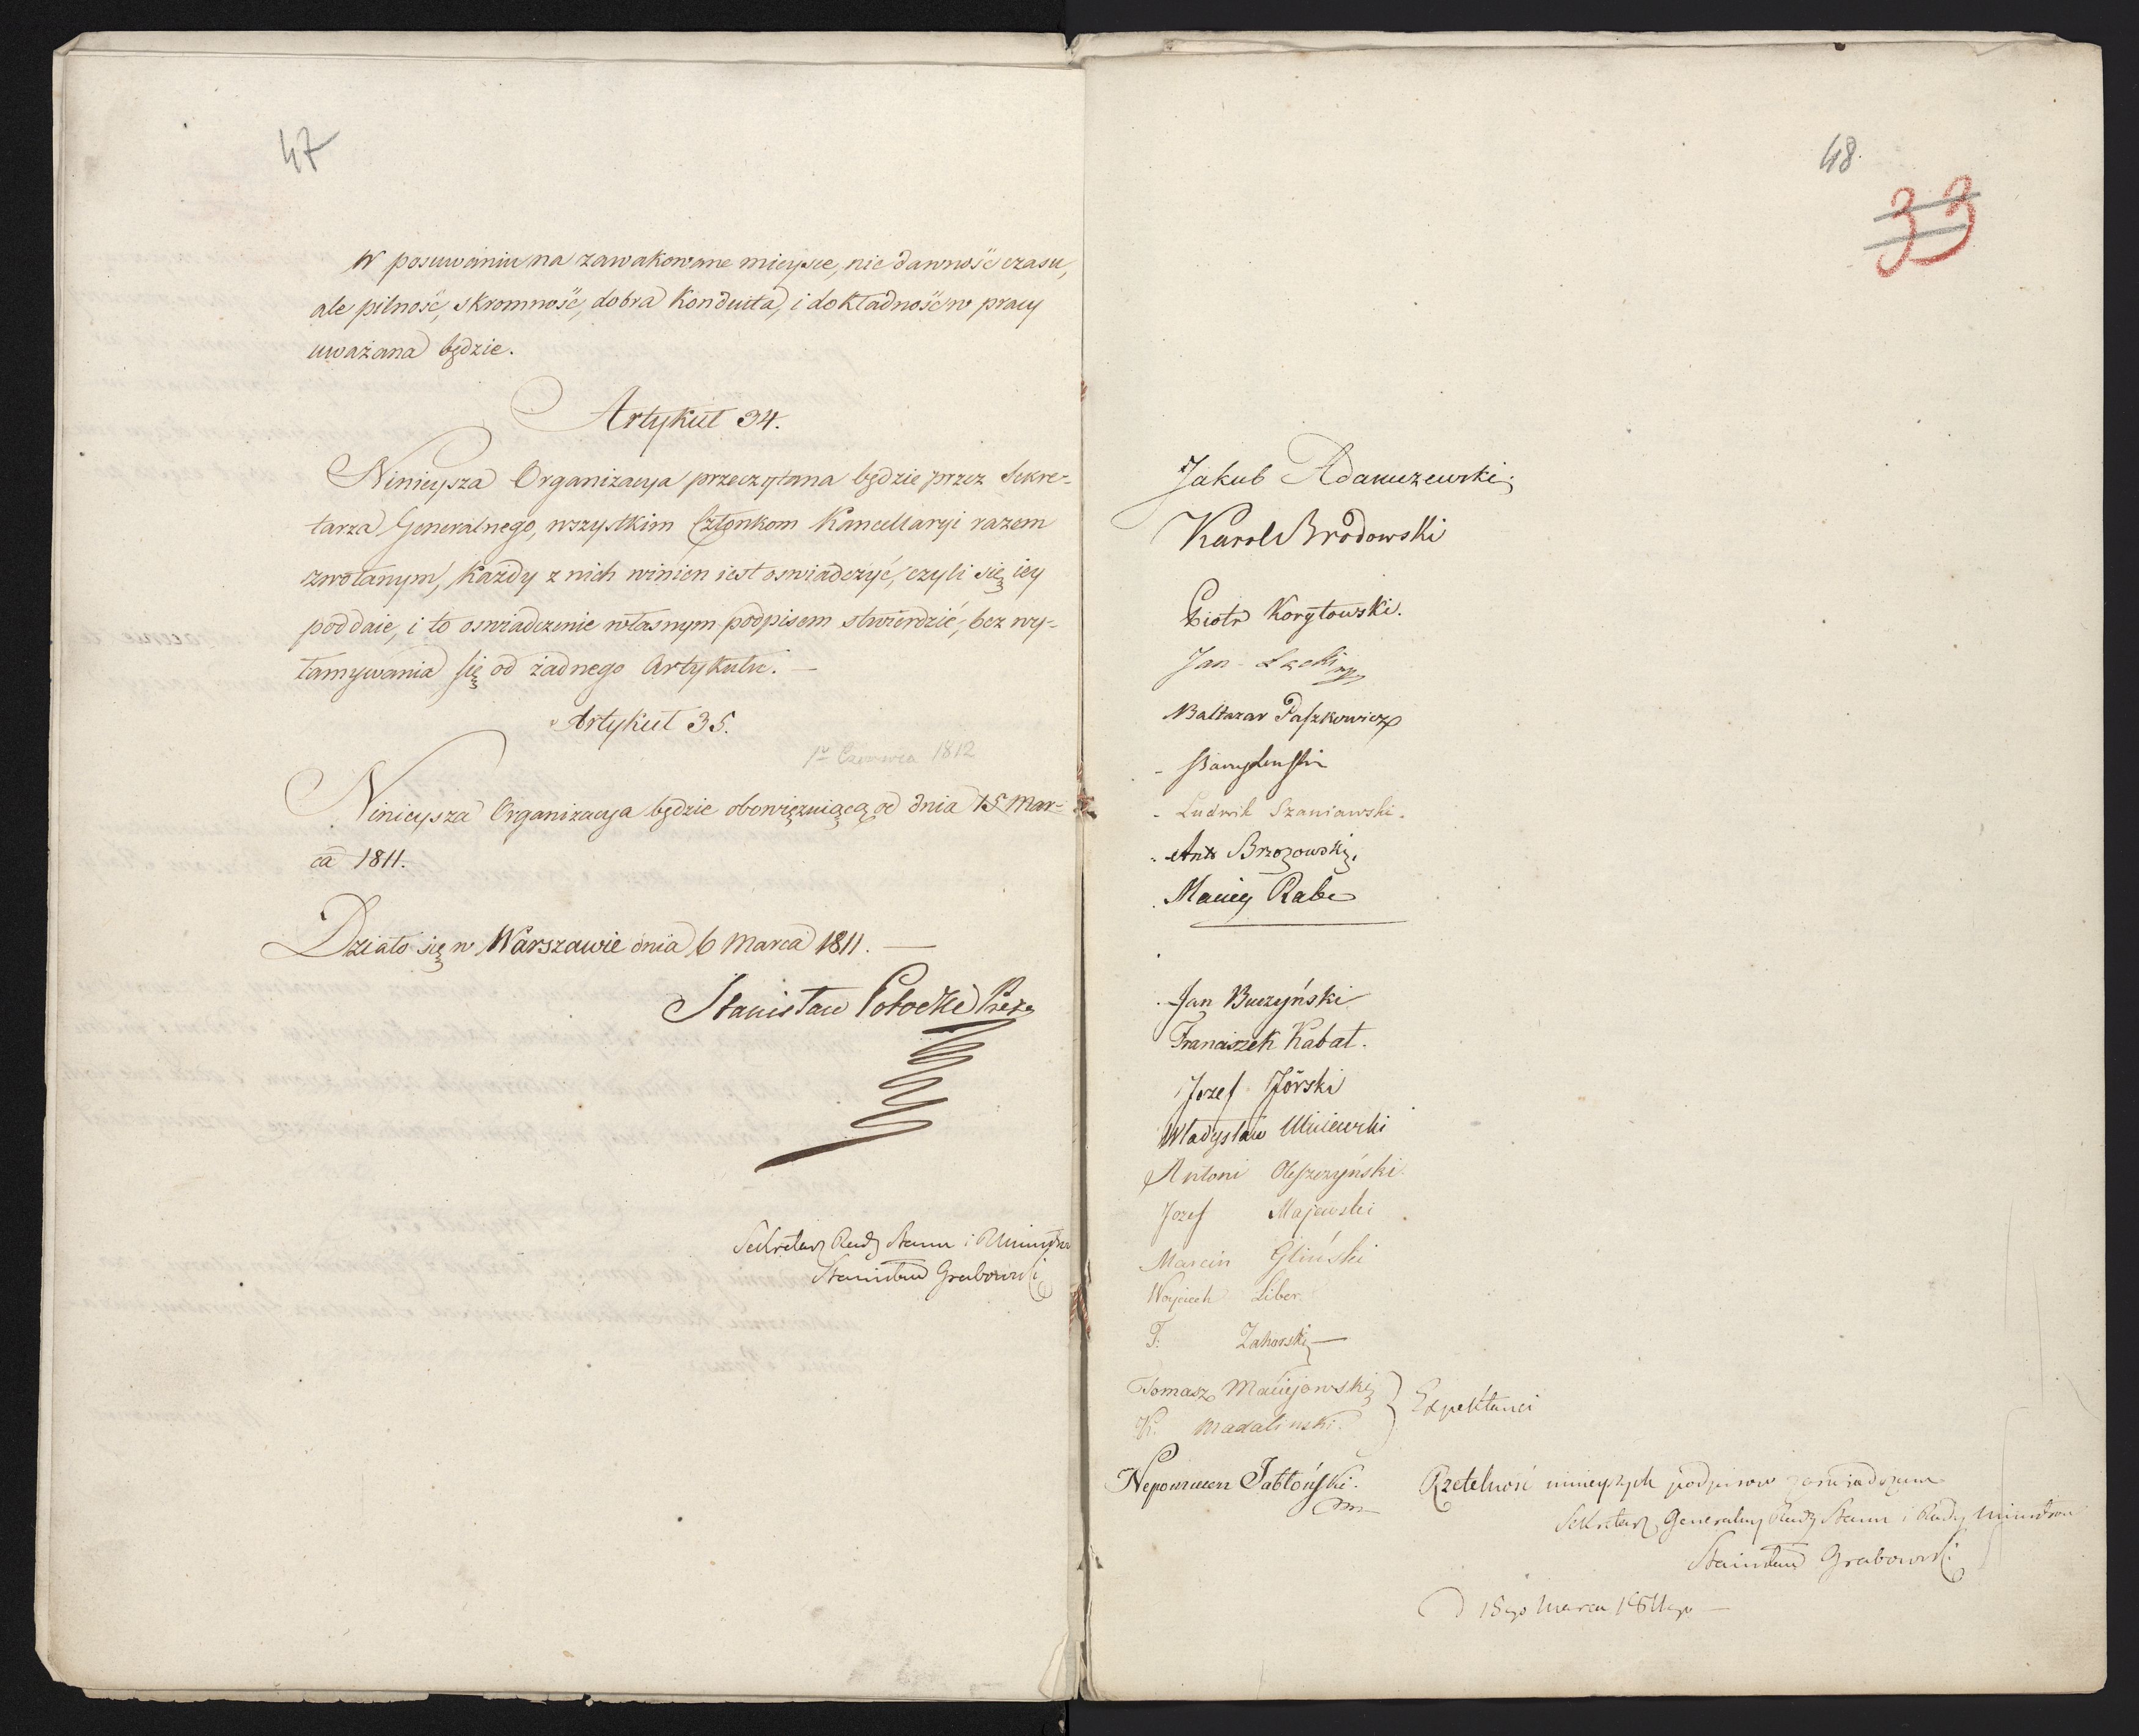 47
W posuwaniu na zawakowane mieysce, nie dawność czasu,
ale pilność, skromność, dobra Konduita, i dokładność w pracy
uważana będzie.
Artykuł 34.
Ninieysza Organizacya przeczytana będzie przez Sekre-
tarza Generalnego, wszystkim Członkom Kancellaryi razem
zwołanym, Każdy z nich winien iest oswiadczyć, czyli się iey
poddaie, i to oswiadczenie własnym podpisem stwierdzić, bez wy-
łamywania się od żadnego Artykułu. —
Artykuł 35.
1o Czerwca 1812
Ninieysza Organizacya będzie obowięzuiącą od dnia 15 Mar-
ca 1811.
Działo się w Warszawie dnia 6 Marca 1811. —
Stanisław Potocki Prezes
Sekretarz Rady Stanu i Ministrow
Stanisław Grabowski
48.
33
Jakub Adamczewski
Karol Brodowski
Piotr Korytowski.
Jan Łęcki mp
Baltazar Paszkowicz
- Ludwik Szaniawski.
Ant Brzozowski.
Maciey Rabe
Jan Buczyński
Franciszek Kabat.
Jozef Górski
Władysław Miniewski
Antoni Olszczyński.
Jozef Majewski
Marcin Gliński
Woyciech Liber.
T. Zahorski —
Tomasz Maciejowski
K. Madalinski.
Expektanci
Nepomucen Jabłoński.
mp
Rzetelność ninieyszych podpisow zaswiadczam
Sekretarz Generalny Rady Stanu i Rady Ministrow
Stanisław Grabowski
D 15go Marca 1811go —